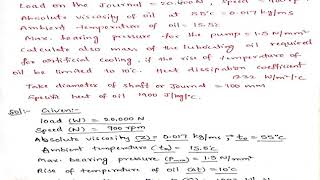 Load on the Journal = 20,000N, Speed = 900 rp
Absolute viscosity of oil at 55°c = 0.017 kg/ms
Ambient temperature of oil = 15.5c
Max. bearing pressure for the pump = 1.5 N/mm²
Calculate also mass of the lubricating oil required
for artificial cooling, if the rise of temperature of
oil be limited to 10°c. Heat dissipation coefficient
1232 W/m²/°c
Take diameter of shaft or Journal = 100 mm
Specific heat of oil 1900 J/kg/°c.
Sol:- Given:-
load (W) = 20,000 N
Speed (N) = 900 rpm
Absolute viscosity (Z) = 0.017 kg/ms, t₀ = 55°c
Ambient temperature (ta) = 15.5°c
Max. bearing pressure = 1.5 N/mm²
Rise of temperature of oil (at) = 10°c